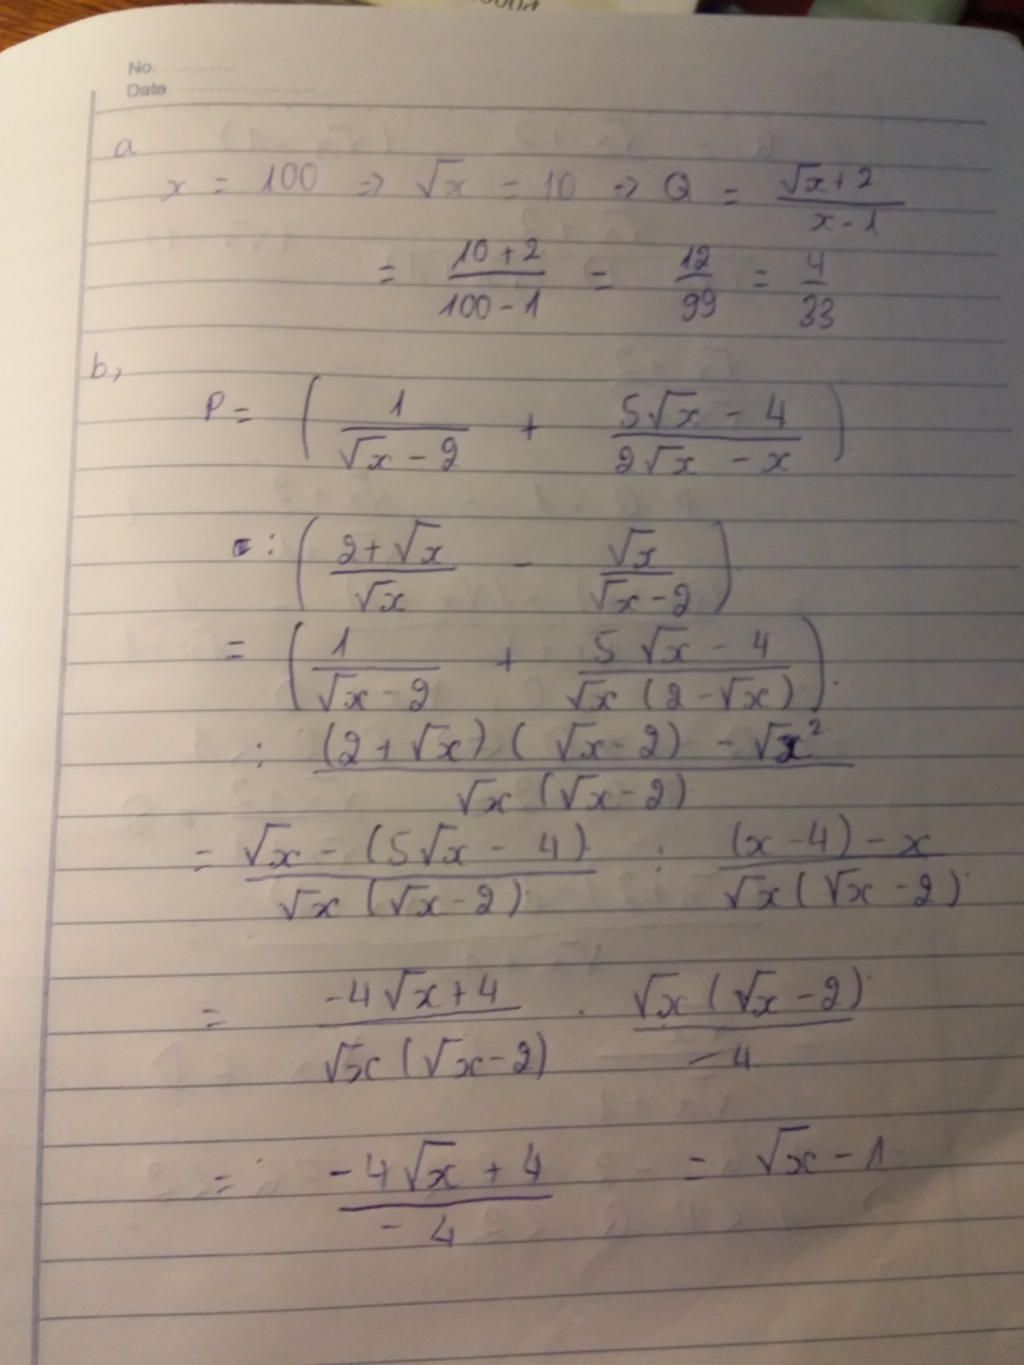 No.
Date
a
x = 100 => √x = 10 => Q = (√x+2)/(x-1)
= (10+2)/(100-1) = 12/99 = 4/33
b,
P = ( 1/(√x-2) + (5√x-4)/(2√x-x) )
: ( (2+√x)/√x - √x/(√x-2) )
= ( 1/(√x-2) + (5√x-4)/(√x(2-√x)) ).
: ((2+√x)(√x-2) - √x²)/(√x(√x-2))
= (√x-(5√x-4))/(√x(√x-2)) : ((x-4)-x)/(√x(√x-2))
= (-4√x+4)/(√x(√x-2)) . (√x(√x-2))/(-4)
= (-4√x+4)/(-4) = √x-1